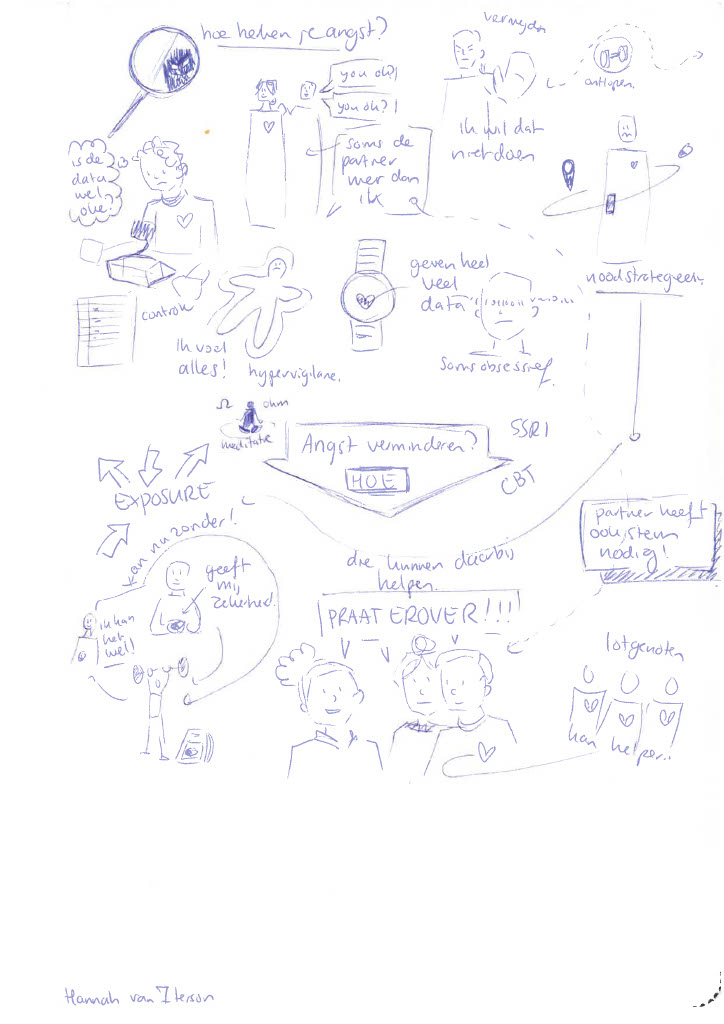 hoe herken je angst?
vermijden
you ok?!
you ok?!
ontlopen
ik wil dat
niet doen
is de
data
wel
oke?
soms de
partner
meer dan
ik
controle
geven heel
veel
data
noodstrategieën
Ik voel
alles!
hypervigilane.
soms obsessief
Ω
ohm
meditatie
Angst verminderen?
HOE
SSRI
CBT
EXPOSURE
kan nu zonder!
geeft
mij
zekerheid.
ik kan
het
wel!
partner heeft
ook stem
nodig!
die kunnen daarbij
helpen.
PRAAT EROVER!!!
lotgenoten
kan helpen..
Hannah van Iterson